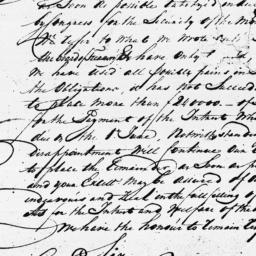 as Soon as possible ratified and
by Congress for the Security of the
We refer to what We Wrote
the Board of Treasury & have only
We have used all possible pains in
the Obligations, it has not Succeeded
to place more than f 210000 - of
for the Payment of the Interest Which
due on the 1 June. Notwithstanding
Disappointment Will Continue Our
to place the Remainder as soon as
and your Excell. may be assured of
endeavours and Zeal in the fulfilling of
Acts for the Interest and Welfare of the
We have the honour to remain
Sir